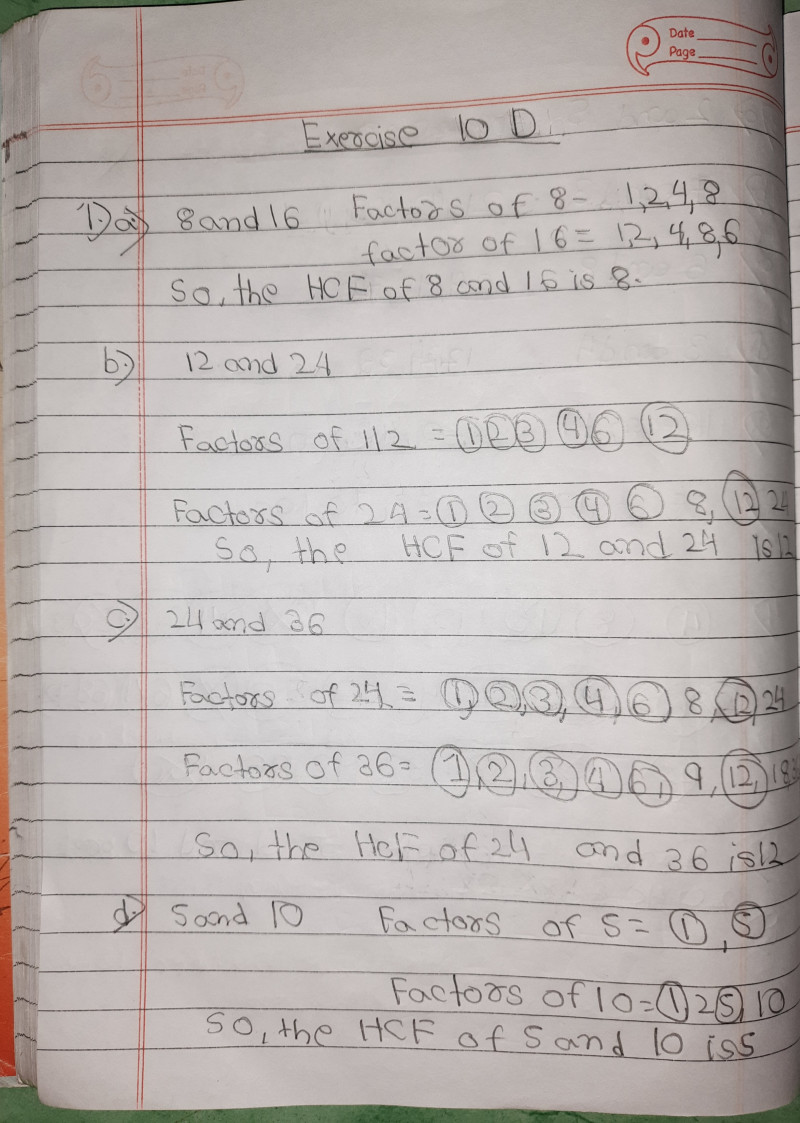 Date
Page
Exercise 10 D.
1.) a.) 8 and 16 Factors of 8 - 1,2,4,8
factor of 16 = 1,2, 4, 8,6
So, the HCF of 8 and 16 is 8.
b.) 12 and 24
Factors of 112 = 1 2 3 4 6 12
Factors of 24 = 1 2 3 4 6 8, 12 24
So, the HCF of 12 and 24 is 12
c.) 24 and 36
Factors of 24 = 1, 2, 3, 4, 6, 8, 12, 24
Factors of 36 = 1, 2, 3, 4 6, 9, 12, 18
So, the HCF of 24 and 36 is 12
d.) 5 and 10 Factors of 5 = 1, 5
Factors of 10 = 1 2 5, 10
So, the HCF of 5 and 10 is 5